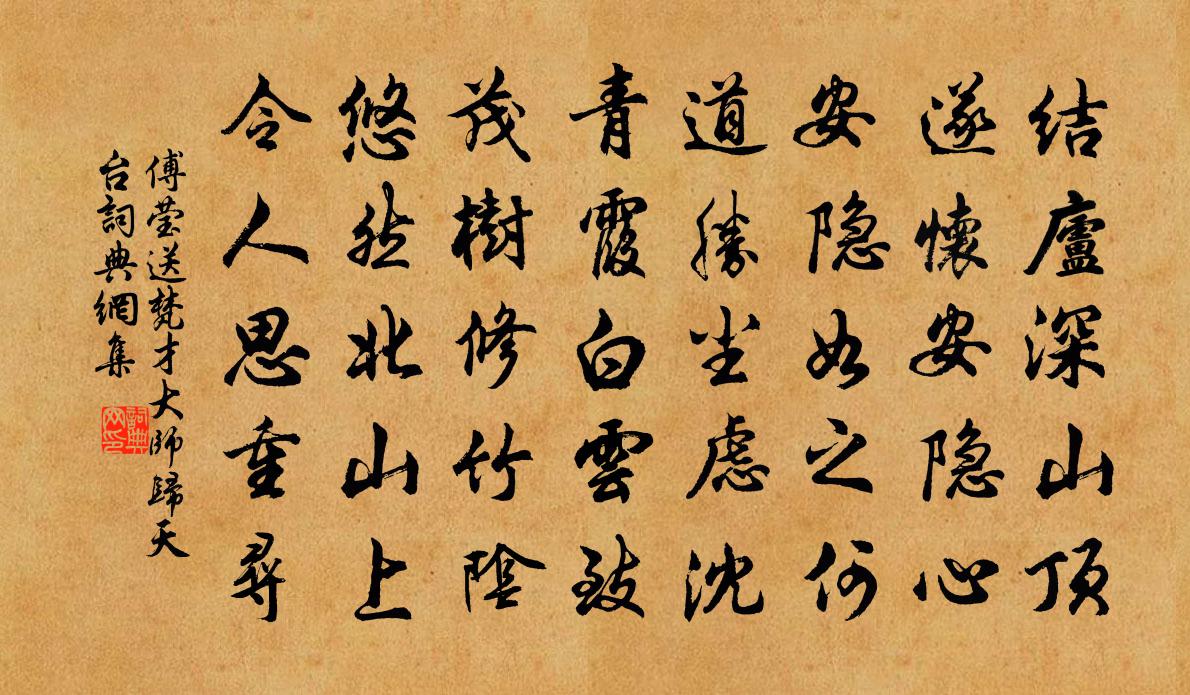 结廬深山顶
遂懷安隐心
安隐如之何
道勝尘虑沈
青霞白雲致
茂樹修竹陰
悠然北山上
令人思重尋
傅莹送梵才大師歸天
台詞典網集
詞典
网印